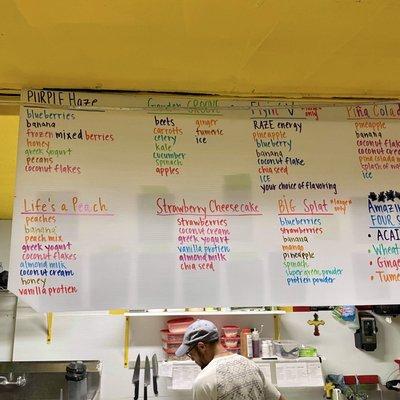 PURPLE Haze
blueberries
banana
frozen mixed berries
honey
greek yogurt
pecans
coconut flakes
Garden GROOVE
beets
carrotts
celery
kale
cucumber
spinach
apples
ginger
turmeric
ice
RAZE energy
pineapple
blueberry
banana
coconut flake
chia seed
ICE
your choice of flavoring
Piña Colada
pineapple
banana
coconut flakes
coconut cream
pina colada
splash of
ice
Life's a Peach
peaches
banana
peach mix
greek yogurt
coconut flakes
almond milk
coconut cream
honey
vanilla protien
Strawberry Cheesecake
strawberries
coconut cream
greek yogurt
vanilla protien
almond milk
chia seed
BIG Splat *large only
blueberries
strawberries
banana
mango
pineapple
spinach
super green powder
protien powder
FOUR
• ACAI
• Wheat
• Ginger